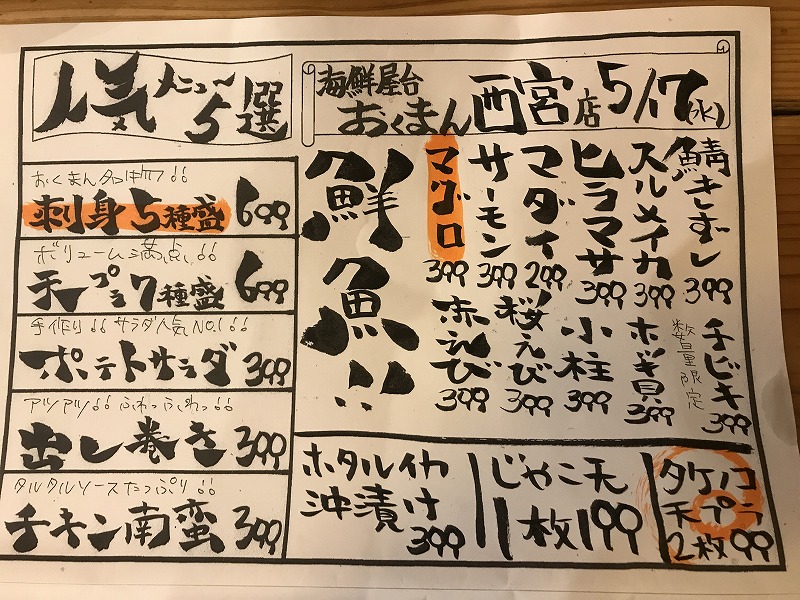 人気メニュー5選
おくまん名物!!
刺身5種盛 699
ボリューム満点!!
天プラ7種盛 699
手作り!! サラダ人気NO.1!!
ポテトサラダ 399
アツアツ!! ふわっふわっ!!
出し巻き 399
タルタルソースたっぷり!!
チキン南蛮 399
海鮮屋台
おくまん 西宮店 5/17(水)
鮮魚!!
鯖きずし 399
スルメイカ 399
ヒラマサ 399
マダイ 299
サーモン 399
マグロ 399
チビキ 399
数量限定
ホッキ貝 399
小柱 399
桜えび 399
赤えび 399
ホタルイカ
沖漬け
399
じゃこ天
1枚199
タケノコ
天プラ
2枚99